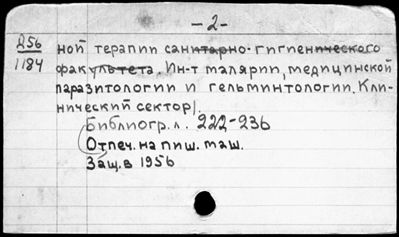 - 2 -
Д56
1184
ной терапии санитарно-гигиенического
факультета. Ин-т малярии, медицинской
паразитологии и гельминтологии. Кли-
нический сектор).
Библиогр. л. 222-236
Отпеч. на пиш. маш.
Защ. в 1956